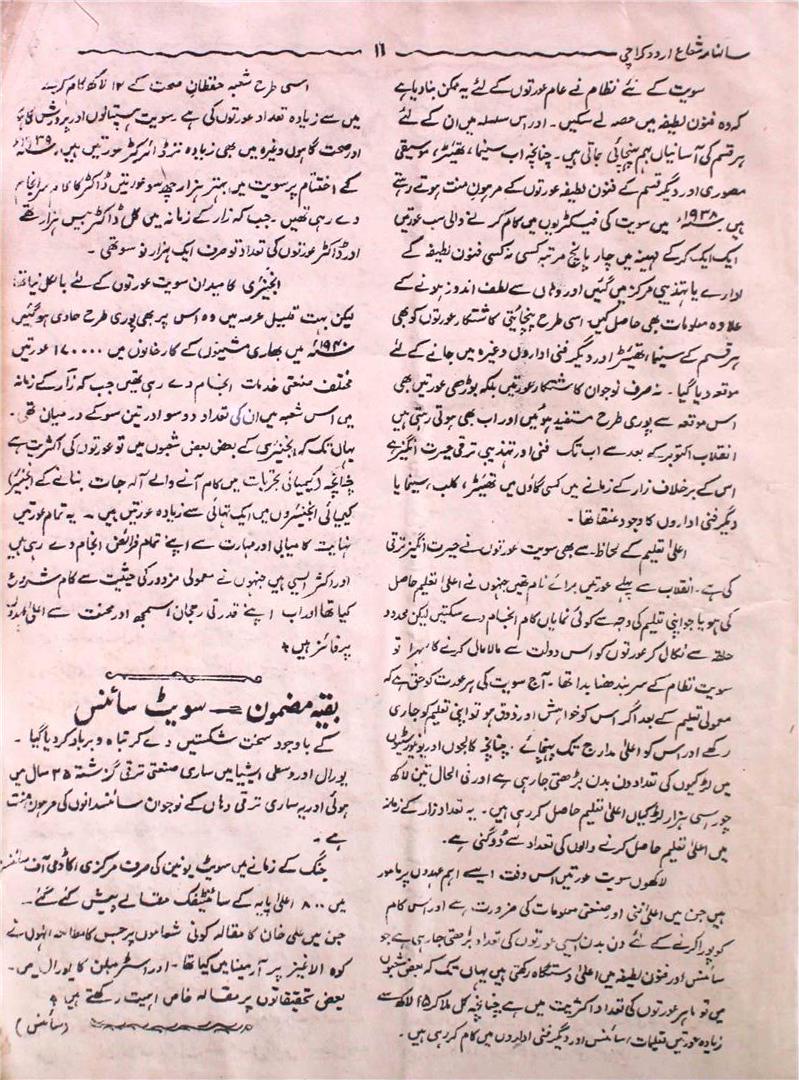 سالنامہ شعاع اردو کراچی
۱۱
سویت کے نئے نظام نے عام عورتوں کے لئے یہ ممکن بنادیا ہے
کہ وہ فنون لطیفہ میں حصہ لے سکیں۔ اور اس سلسلہ میں ان کے لئے
ہر قسم کی آسانیاں بہم پہنچائی جاتی ہیں۔ چنانچہ اب سنیما، تھیٹر، موسیقی
مصوری اور دیگر قسم کے فنون لطیفہ عورتوں کے مرہون منت ہوتے رہتے
ہیں ۱۹۳۸ء میں سویت کی فیکٹریوں میں کام کرنے والی سب عورتیں
ایک ایک کرکے مہینہ میں چار پانچ مرتبہ کسی نہ کسی فنون لطیفہ کے
ادارے یا تہذیبی مرکز میں گئیں اور وہاں سے لطف اندوز ہونے کے
علاوہ معلومات بھی حاصل کیں۔ اسی طرح پنچائیتی کاشتکار عورتوں کو بھی
ہر قسم کے سنیما، تھیٹر اور دیگر فنی اداروں وغیرہ میں جانے کے لئے
موقعہ دیا گیا۔ نہ صرف نوجوان کاشتکار عورتیں بلکہ بوڑھی عورتیں بھی
اس موقعہ سے پوری طرح مستفید ہوئیں اور اب بھی ہوتی رہتی ہیں
انقلاب اکتوبر کے بعد سے اب تک فنی اور تہذیبی ترقی حیرت انگیز ہے
اس کے برخلاف زار کے زمانے میں کسی گاؤں میں تھیٹر، کلب، سینما یا
دیگر فنی اداروں کا وجود عنقا تھا۔
اعلیٰ تعلیم کے لحاظ سے بھی سویت عورتوں نے حیرت انگیز ترقی
کی ہے۔ انقلاب سے پہلے عورتیں برائے نام تھیں جنہوں نے اعلیٰ تعلیم حاصل
کی ہو یا جو اپنی تعلیم کی وجہ سے کوئی نمایاں کام انجام دے سکتیں لیکن محدود
حلقہ سے نکال کر عورتوں کو اس دولت سے مالا مال کرنے کا سہرا تو
سویت نظام کے سر بندھنا بدا تھا۔ آج سویت کی ہر عورت کو حق ہے کہ
معمولی تعلیم کے بعد اگر اس کو خواہش اور ذوق ہو تو اپنی تعلیم کو جاری
رکھے اور اس کو اعلیٰ مدارج تک پہنچائے۔ چنانچہ کالجوں اور یونیورسٹیوں
میں لڑکیوں کی تعداد دن بدن بڑھتی جا رہی ہے اور فی الحال تین لاکھ
چوراسی ہزار لڑکیاں اعلیٰ تعلیم حاصل کر رہی ہیں۔ یہ تعداد زار کے زمانہ
میں اعلیٰ تعلیم حاصل کرنے والوں کی تعداد سے دُوگنی ہے۔
لاکھوں سویت عورتیں اس وقت ایسے اہم عہدوں پر مامور
ہیں جن میں اعلیٰ فنی اور صنعتی معلومات کی ضرورت ہے اور اس کام
کو پورا کرنے کے لئے دن بدن ایسی عورتوں کی تعداد بڑھتی جا رہی ہے جو
سائنس اور فنون لطیفہ میں اعلیٰ دستگاہ رکھتی ہیں یہاں تک کہ بعض شعبوں
میں تو ماہر عورتوں کی تعداد اکثریت میں ہے چنانچہ کل ملا کر لاکھ سے
زیادہ عورتیں تعلیمات، سائنس اور دیگر فنی اداروں میں کام کر رہی ہیں۔
اسی طرح شعبہ حفظان صحت کے ۱۲ لاکھ کام کرنے
میں سے زیادہ تعداد عورتوں کی ہے۔ سویت ہسپتالوں اور پرورش گاہوں
اور صحت گاہوں وغیرہ میں بھی زیادہ تر ڈائرکٹر عورتیں ہیں۔
کے اختتام پر سویت میں بہتر ہزار چھ سو عورتیں ڈاکٹر کا کام سرانجام
دے رہی تھیں۔ جب کہ زار کے زمانہ میں کل ڈاکٹر بیس ہزار تھے
اور ڈاکٹر عورتوں کی تعداد تو صرف ایک ہزار نو سو تھی۔
انجنیئری کا میدان سویت عورتوں کے لئے بالکل نیا تھا
لیکن بہت قلیل عرصہ میں وہ اس پر بھی پوری طرح حاوی ہوگئیں
۱۹۴۰ء میں بھاری مشینوں کے کارخانوں میں ۱۷۰۰۰۰ عورتیں
مختلف صنعتی خدمات انجام دے رہی تھیں جب کہ زار کے زمانہ
میں اس شعبہ میں ان کی تعداد دو سو اور تین سو کے درمیان تھی۔
یہاں تک کہ انجنیئری کے بعض بعض شعبوں میں تو عورتوں کی اکثریت ہے
چنانچہ (کیمیائی تجربات میں کام آنے والے آلہ جات بنانے کے انجنیئر)
کیمیائی انجنیئروں میں ایک تہائی سے زیادہ عورتیں ہیں۔ یہ تمام عورتیں
نہایت کامیابی اور مہارت سے اپنے تمام فرائض انجام دے رہی ہیں
اور اکثر ایسی ہیں جنہوں نے معمولی مزدور کی حیثیت سے کام شروع
کیا تھا اور اب اپنے قدرتی رجحان، سمجھ اور محنت سے اعلیٰ عہدوں
پر فائز ہیں
بقیہ مضمون = سویٹ سائنس
کے باوجود سخت شکستیں دے کر تباہ و برباد کر دیا گیا۔
یورال اور وسطی ایشیا میں ساری صنعتی ترقی گزشتہ ۲۵ سال میں
ہوئی اور یہ ساری ترقی وہاں کے نوجوان سائنسدانوں کی مرہون منت
ہے۔
جنگ کے زمانے میں سویٹ یونین کی صرف مرکزی اکاڈمی آف سائنس
میں ۸۰۰ اعلیٰ پایہ کے سائنٹیفک مقالے پیش کئے گئے۔
جن میں علی خان کا مقالہ کونی شعاعوں پر جس کا مطالعہ انہوں نے
کوہ الاغیز پر آرمینا میں کیا تھا۔ اور کا یورال میں۔
بعض تحقیقاتوں پر مقالہ خاص اہمیت رکھتے ہیں
(سائنس)